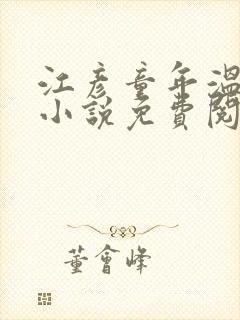 江彥童年溫
小說免費閱
董會峰